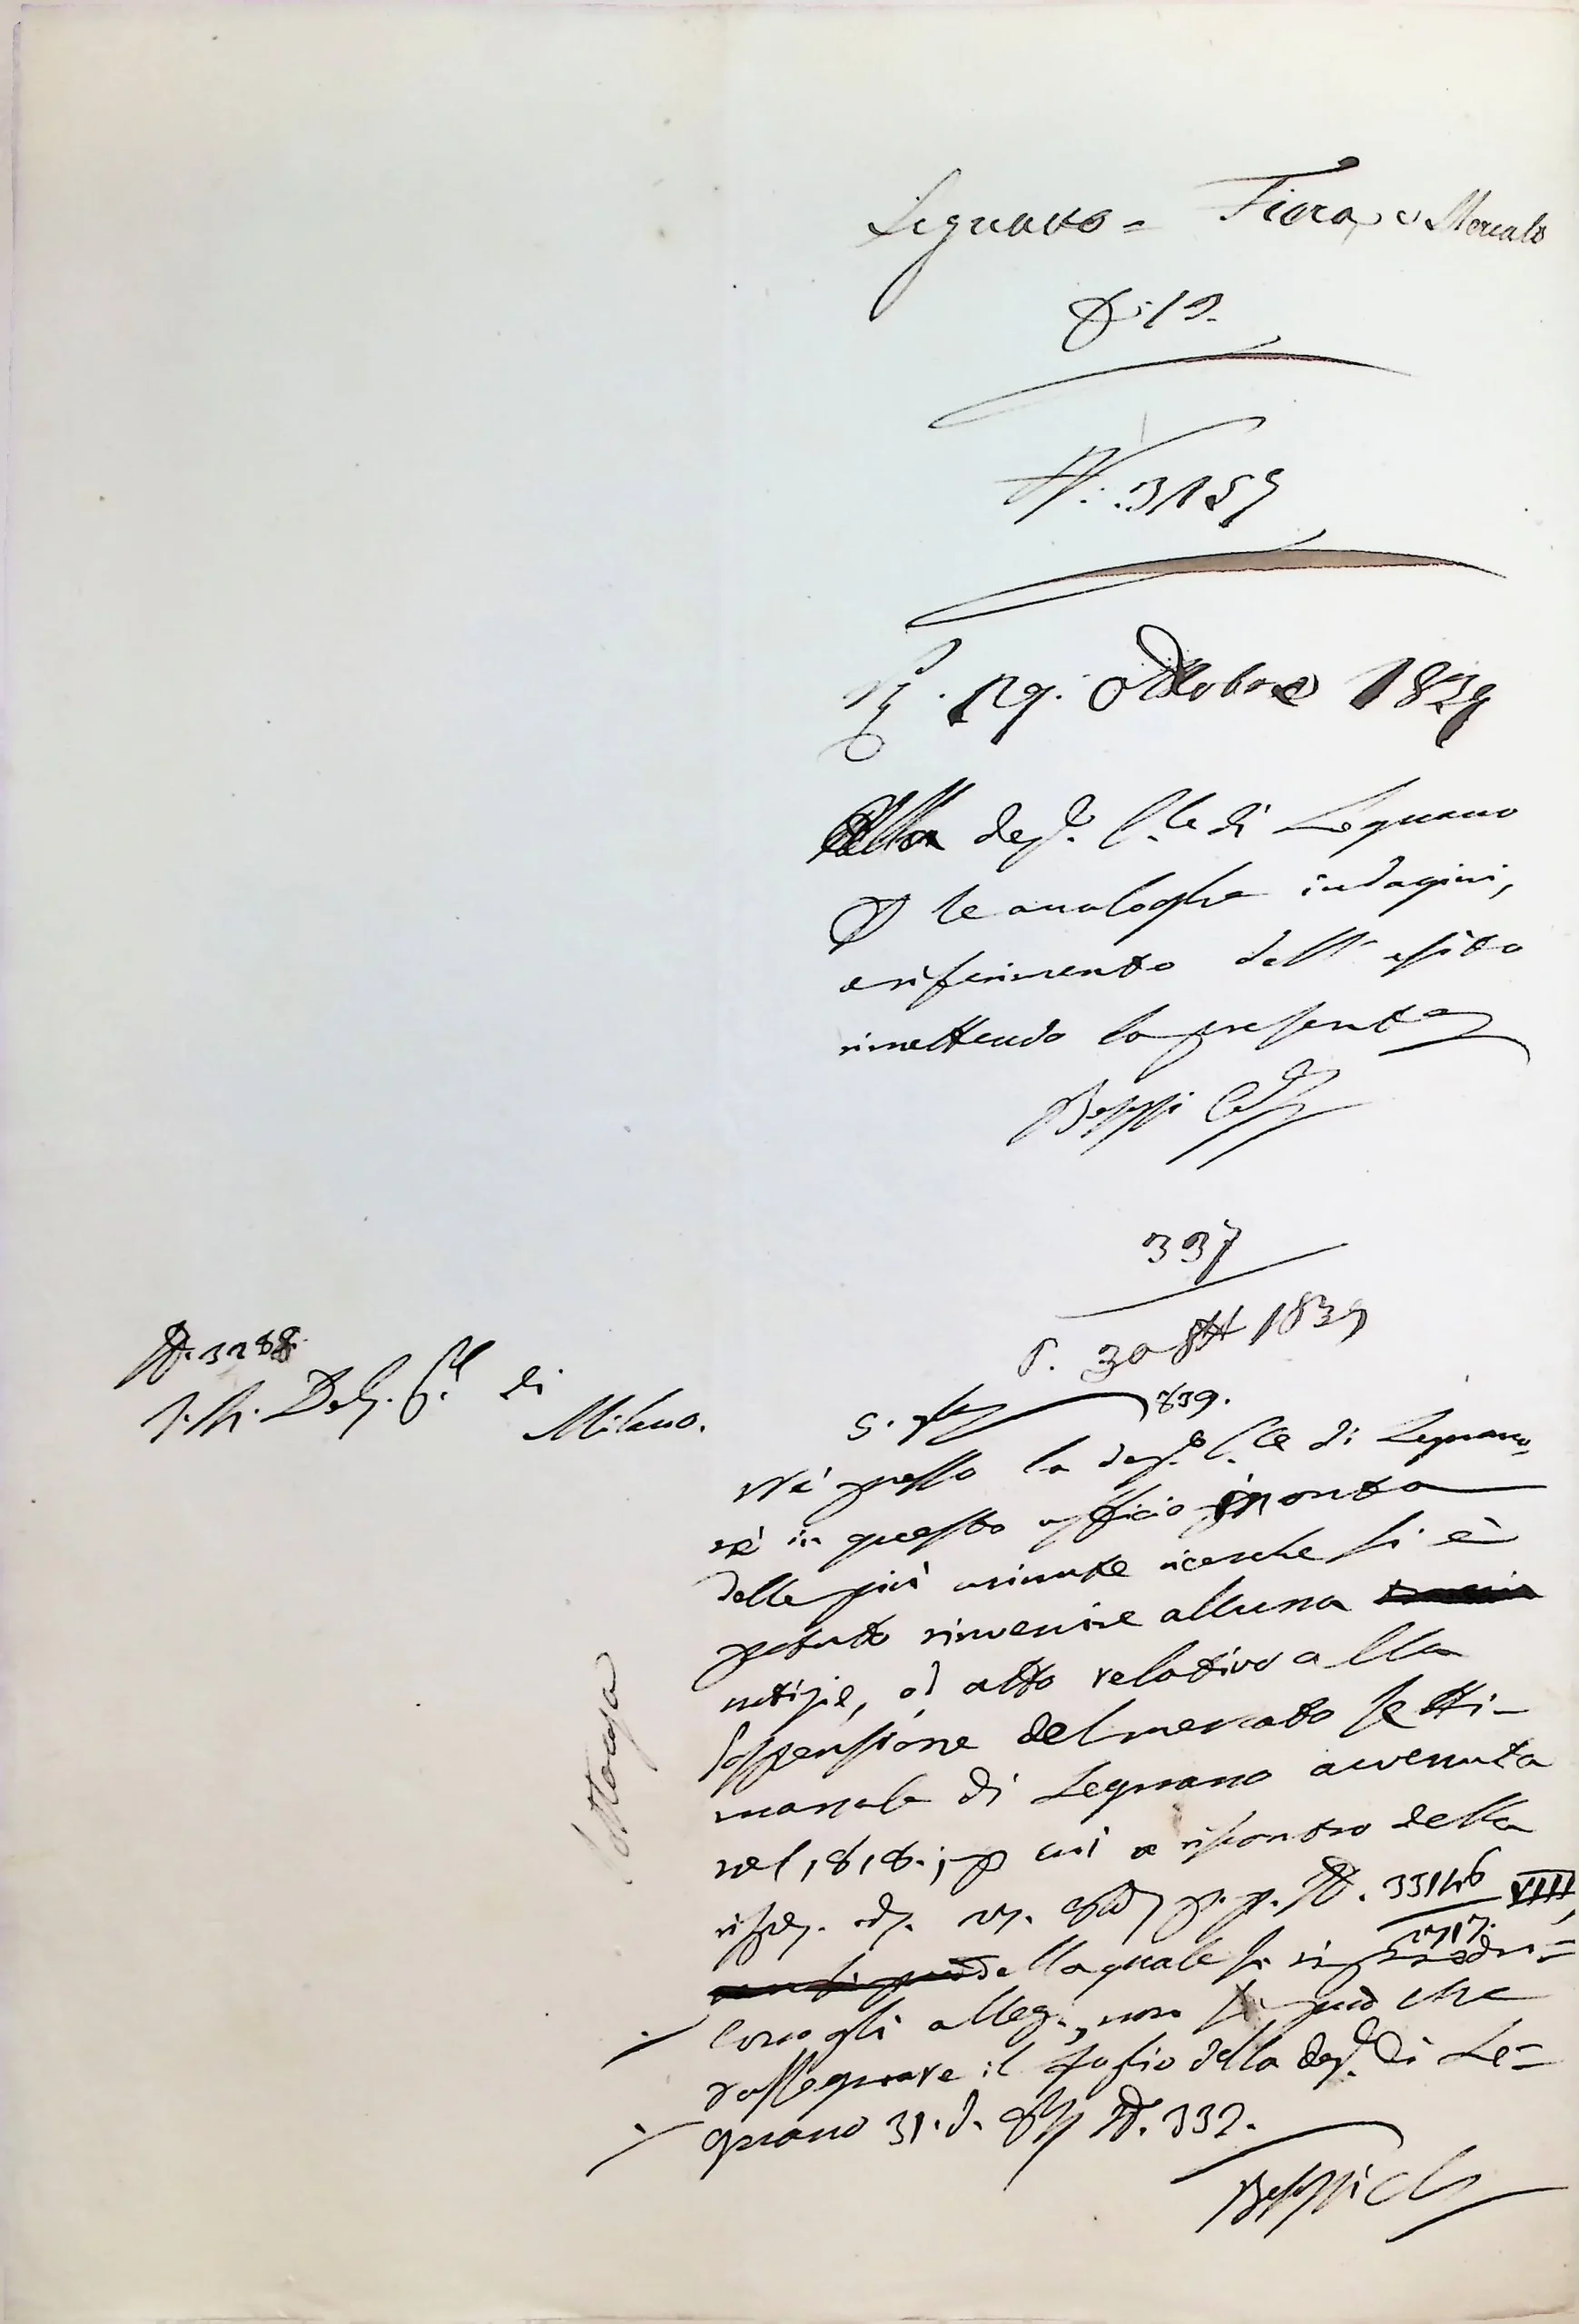 Legnano = Fiera, e Mercato
N.: 3159
29. Ottobre 1839
Alla dep.e C.le di Legnano
le analoghe indagini,
e riferimento dell'esito
rimettendo la presente
Beffi
337
P. 30 8bre 1839
N. 3288.
di
Milano.
839.
Nè presso la dep.e C.le di Legnano,
nè in questo ufficio ad onta
delle più minute ricerche si è
potuto rinvenire alcuna
notizie, od atto relativo alla
sospensione del mercato setti-
manale di Legnano avvenuta
nel 1818.; p cui a riscontro della
p. p. N. 33146 VIII,
2717.
della quale si
cono gli alleg., non si può che
rassegnare il foglio della dep.e di Le=
gnano 31. d. N. 332.
Beffi
sottoscritta